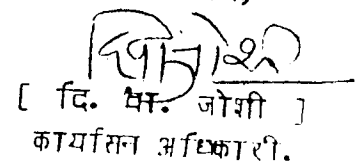 [ दि. वा. जोशी ]
कार्यासन अधिकारी.